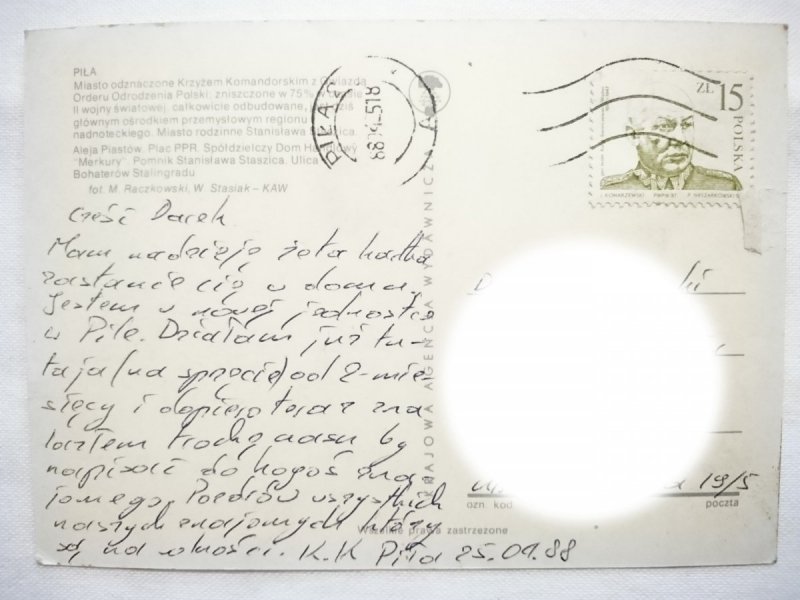 PIŁA
Miasto odznaczone Krzyżem Komandorskim z Gwiazdą
Orderu Odrodzenia Polski; zniszczone w 75% w czasie
II wojny światowej, całkowicie odbudowane, dziś
głównym ośrodkiem przemysłowym regionu
nadnoteckiego. Miasto rodzinne Stanisława Staszica.
Aleja Piastów. Plac PPR. Spółdzielczy Dom Handlowy
"Merkury". Pomnik Stanisława Staszica. Ulica
Bohaterów Stalingradu
fot. M. Raczkowski, W. Stasiak – KAW
Cześć Darek
Mam nadzieję że ta kartka
zastanie cię w domu.
Jestem w nowej jednostce
w Pile. Działam już tu-
taj (na sprzęcie) od 2-mie
sięcy i dopiero teraz zna
lazłem trochę czasu by
napisać do kogoś zna
jomego. Pozdrów wszystkich
naszych znajomych którzy
są na wolności. K.K Piła 25.01.88
PIŁA
ZŁ 15
POLSKA
KRAJOWA AGENCJA WYDAWNICZA
19/5
ozn. kod
poczta
Wszelkie prawa zastrzeżone